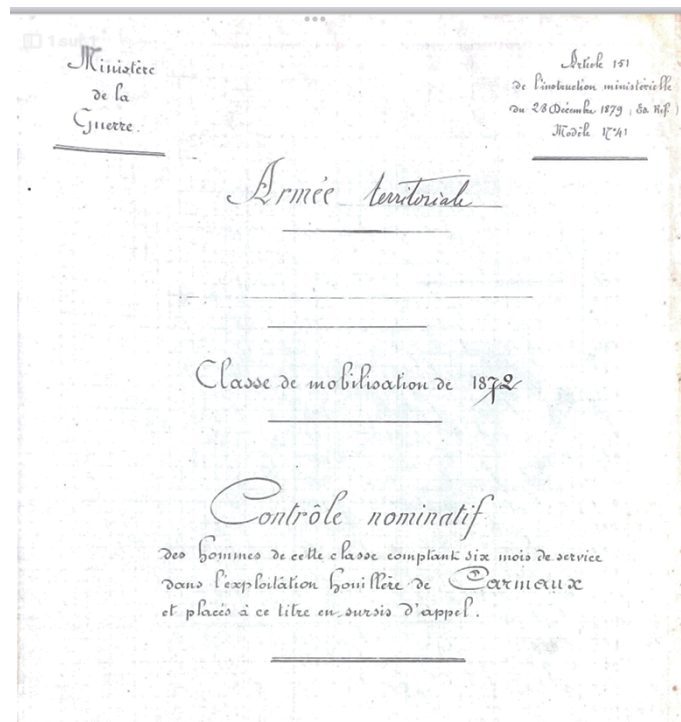 Ministère
de la
Guerre.
Article 151
de l'instruction ministérielle
du 28 Décembre 1879
Modèle N° 41
Armée territoriale
Classe de mobilisation de 1872
Contrôle nominatif
des hommes de cette classe comptant six mois de service
dans l'exploitation houillère de Carmaux
et placés à ce titre en sursis d'appel.